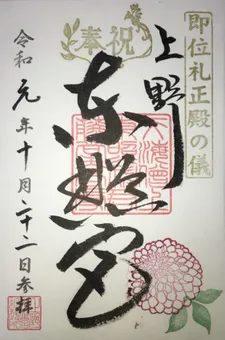 即位礼正殿の儀
奉祝
上野
東照宮
令和元年十月二十二日参拝